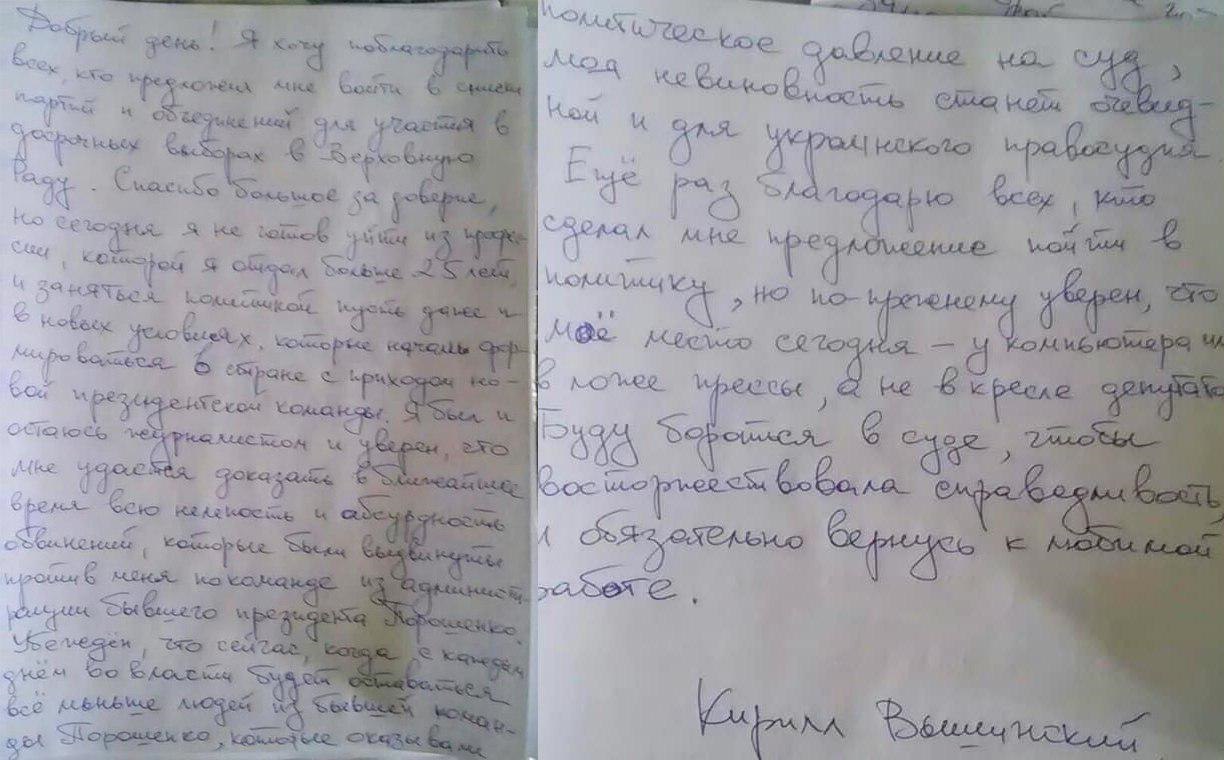 Добрый день! Я хочу поблагодарить
всех, кто предложил мне войти в списки
партий и объединений для участия в
досрочных выборах в Верховную
Раду. Спасибо большое за доверие,
но сегодня я не готов уйти из профес-
сии, которой я отдал больше 25 лет,
и заняться политикой пусть даже и
в новых условиях, которые начали фор-
мироваться в стране с приходом но-
вой президентской команды. Я был и
остаюсь журналистом и уверен, что
мне удастся доказать в ближайшее
время всю нелепость и абсурдность
обвинений, которые были выдвинуты
против меня по команде из админист-
рации бывшего президента Порошенко.
Убеждён, что сейчас, когда с каждым
днём во власти будет оставаться
всё меньше людей из бывшей коман-
ды Порошенко, которые оказывали
политическое давление на суд,
моя невиновность станет очевид-
ной и для украинского правосудия.
Ещё раз благодарю всех, кто
сделал мне предложение пойти в
политику, но по-прежнему уверен, что
моё место сегодня – у компьютера или
в ложе прессы, а не в кресле депутата.
Буду бороться в суде, чтобы
восторжествовала справедливость,
и обязательно вернусь к любимой
работе.
Кирилл Вышинский